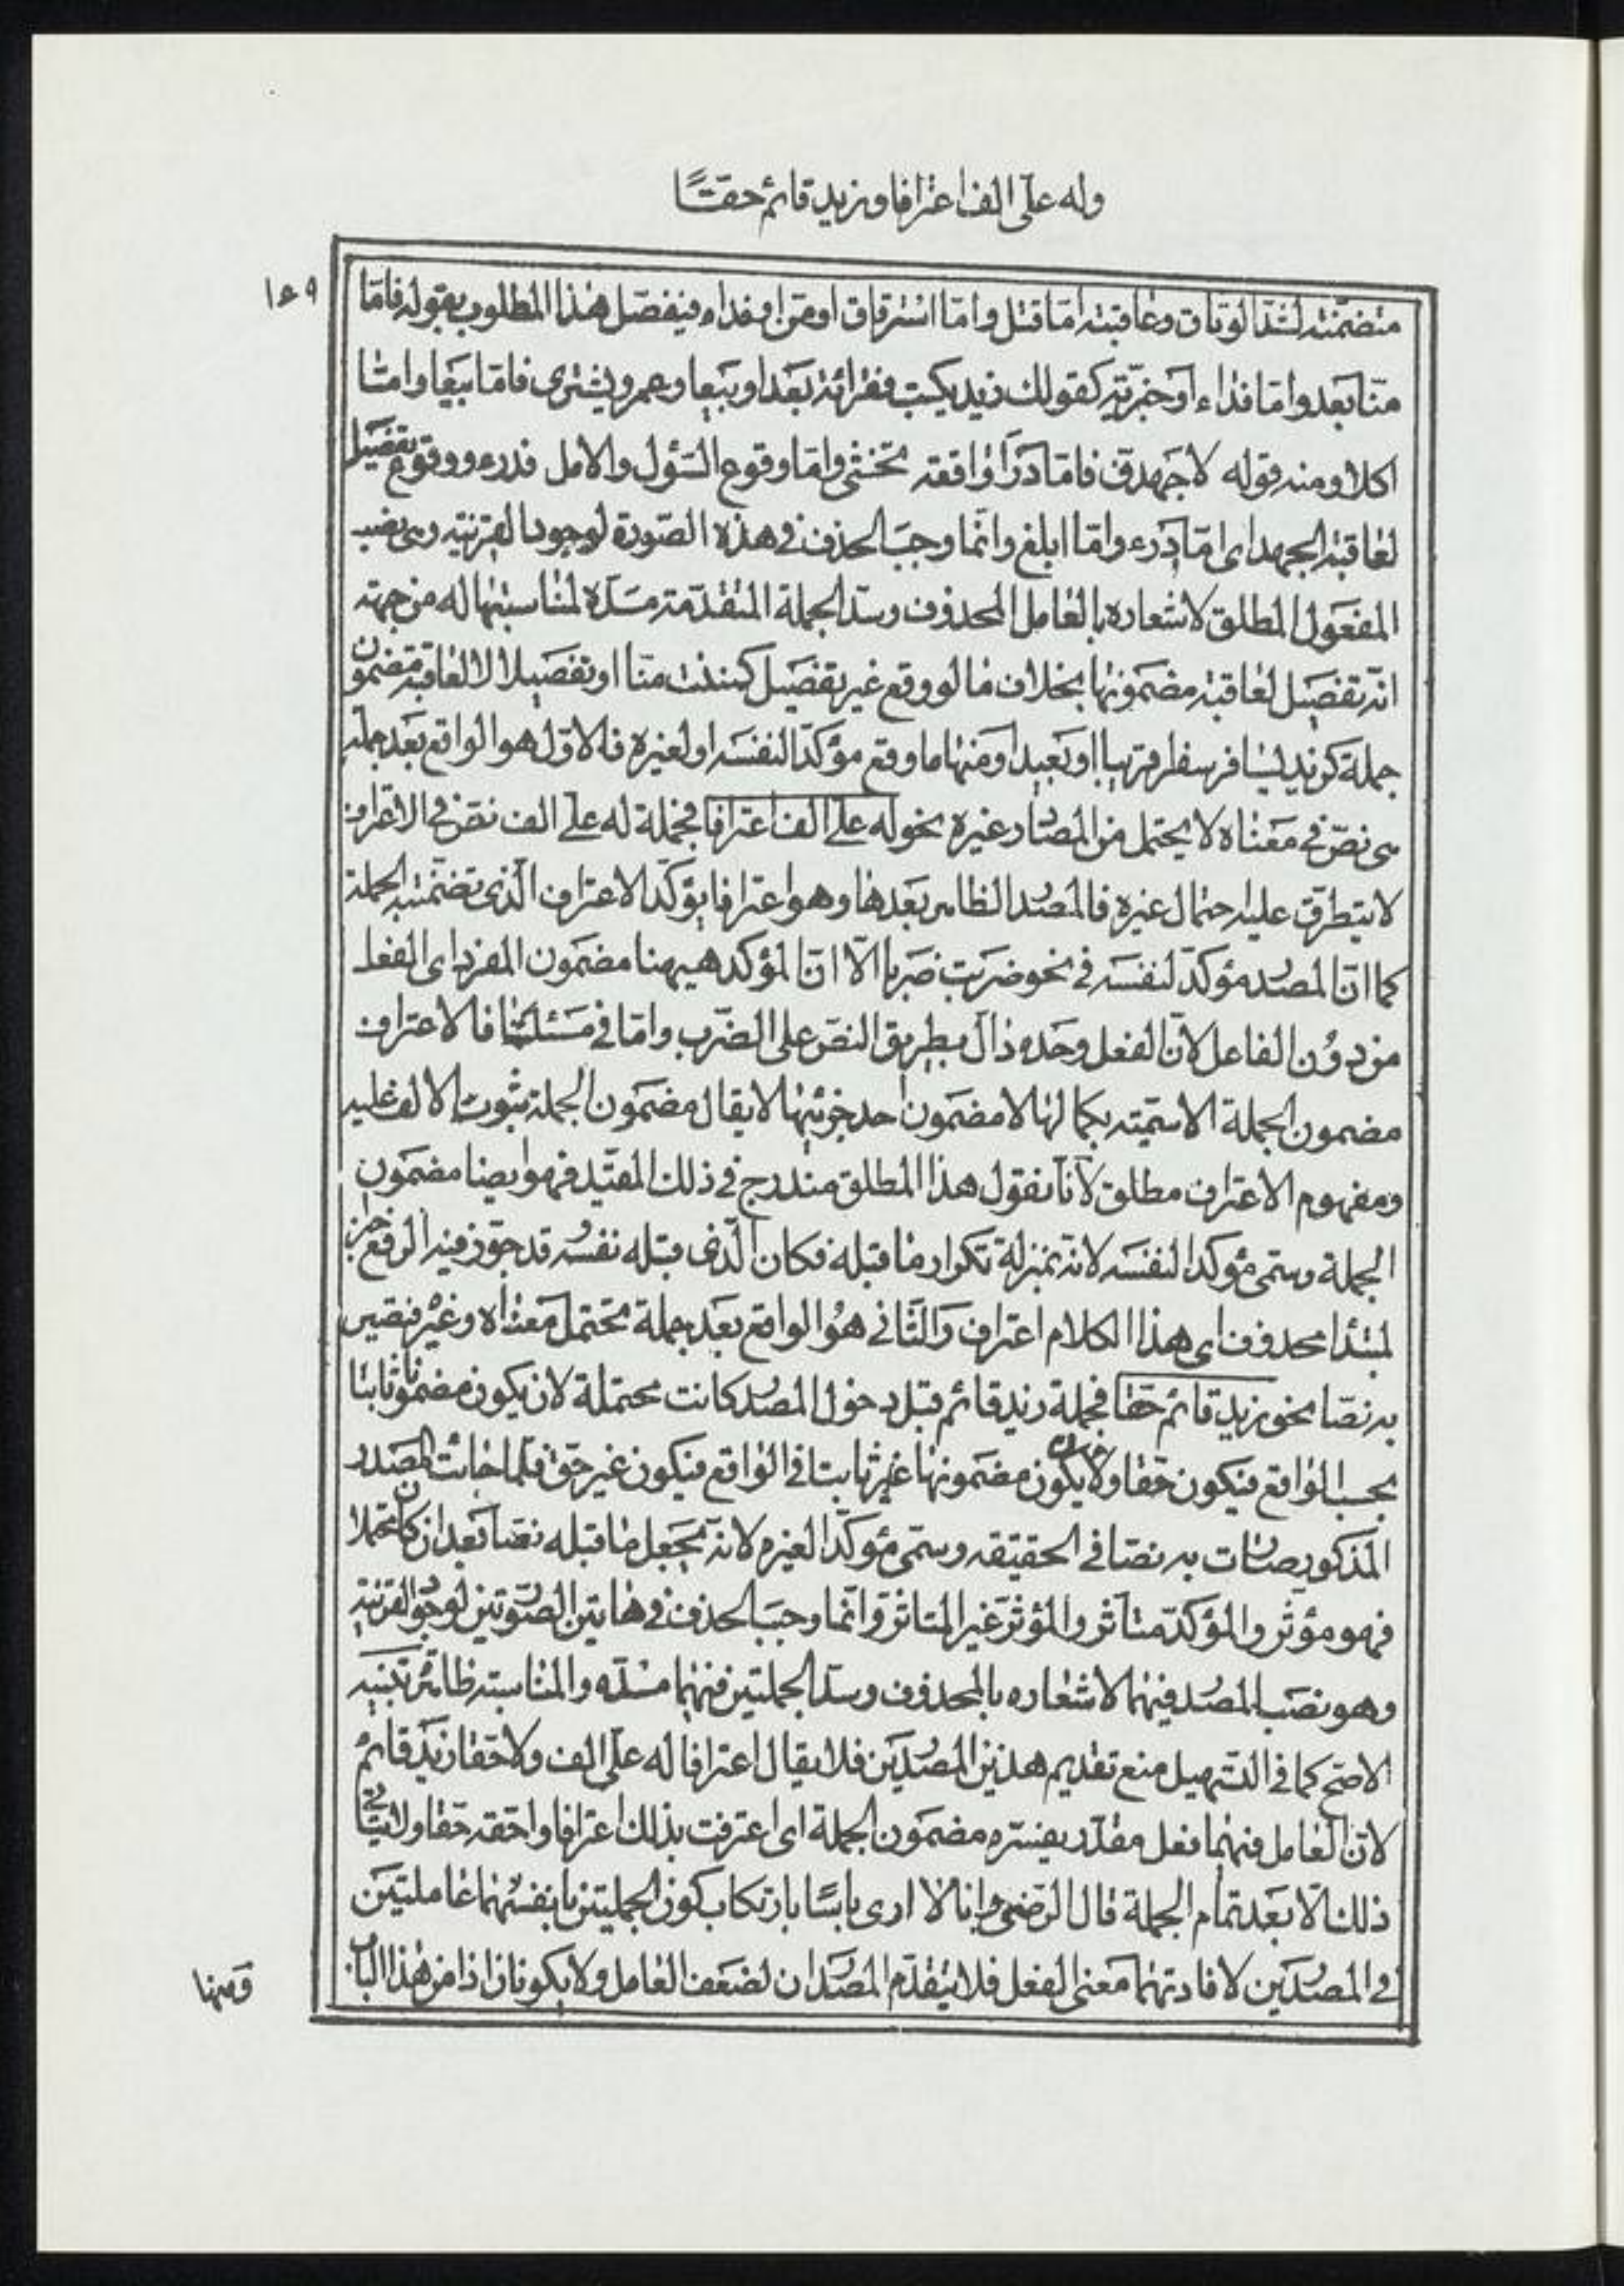 وله على الف اعترافا و زيد قائم حقًا
١٤٩
متضمنة لشد الوثاق وعاقبته اما قتل واما استرقاق او من او فداء فيفصل هذا المطلوب بقوله فامّا
منّا بعد واما فداء او خبريّة كقولك زيد يكتب فقرائة بعد او بيعا وعمرو يشترى فامّا بيعا وامّا
اكلا ومنه قوله لاجهدن فامّا درأ واقعة تخشى وامّا وقوع السّؤل والامل فدرء ووقوع تفصيل
لعاقبة الجهد اى امّا ادرء وامّا ابلغ وانّما وجب الحذف فى هذه الصّورة لوجود القرينة وهى نصب
المفعول المطلق لاشعاره بالعامل المحذوف وسدّ الجملة المتقدّمة مسدّه لمناسبتها له من جهة
انّه تفصيل لعاقبة مضمونها بخلاف ما لو وقع غير تفصيل كمننت منّا او تفصيلا لا لعاقبة مضمون
جملة كزيد يسافر سفرا قريبا او بعيدا ومنها ما وقع مؤكّدا لنفسه او لغيره فالاوّل هو الواقع بعد جملة
هى نصّ فى معناه لا يحتمل من المصادر غيره نحو له على الف اعترافا فجملة له على الف نصّ فى الاعتراف
لا يتطرّق عليه احتمال غيره فالمصدر الظاهر بعدها وهو اعترافا يؤكّد الاعتراف الّذى تضمّنته الجملة
كما انّ المصدر مؤكّد لنفسه فى نحو ضربت ضربا الّا انّ المؤكد هيهنا مضمون المفرد اى الفعل
من دون الفاعل لانّ الفعل وحده دالّ بطريق النصّ على الضّرب وامّا فى مسئلتنا فالاعتراف
مضمون الجملة الاسميّة بكمالها لا مضمون احد جزئيها لا يقال مضمون الجملة ثبوت الالف عليه
ومفهوم الاعتراف مطلق لانّا نقول هذا المطلق مندرج فى ذلك المقيّد فهو ايضا مضمون
الجملة وسمّى مؤكدا لنفسه لانّه بمنزلة تكرار ما قبله فكان الّذى قبله نفسه قد جوّز فيه الرفع خبرا
لمبتدا محذوف اى هذا الكلام اعتراف والثّانى هو الواقع بعد جملة تحتمل معناه وغيره فتصير
به نصّا نحو زيد قائم حقا فجملة زيد قائم قبل دخول المصدر كانت محتملة لان يكون مضمونها ثابتا
بحسب الواقع فيكون حقا ولان يكون مضمونها غير ثابت فى الواقع فيكون غير حق فلما جائت المصدر
المذكور صارت به نصّا فى الحقيقه وسمّى مؤكّدا لغيره لانّه يجعل ما قبله نصّا بعد ان كان محتملا
فهو مؤثر والمؤكّد متأثر والمؤثر غير المتاثر وانّما وجب الحذف فى هاتين الصّورتين لوجود القرينة
وهو نصب المصدر فيهما لاشعاره بالمحذوف وسدّ الجملتين فيهما مسدّه والمناسبة ظاهرة تنبيه
الاصحّ كما فى التسهيل منع تقديم هذين المصدرين فلا يقال اعترافا له على الف ولا حقا زيد قائم
لانّ العامل فيهما فعل مقدّر يفسّره مضمون الجملة اى اعترفت بذلك اعترافا واحقّه حقا ولا يتأتّى
ذلك الّا بعد تمام الجملة قال الرّضى وانا لا ارى باسًا بارتكاب كون الجملتين بانفسهما عاملتين
فى المصدرين لافادتهما معنى الفعل فلا يتقدّم المصدران لضعف العامل ولا يكونان اذا من هذا الباب
ومنها